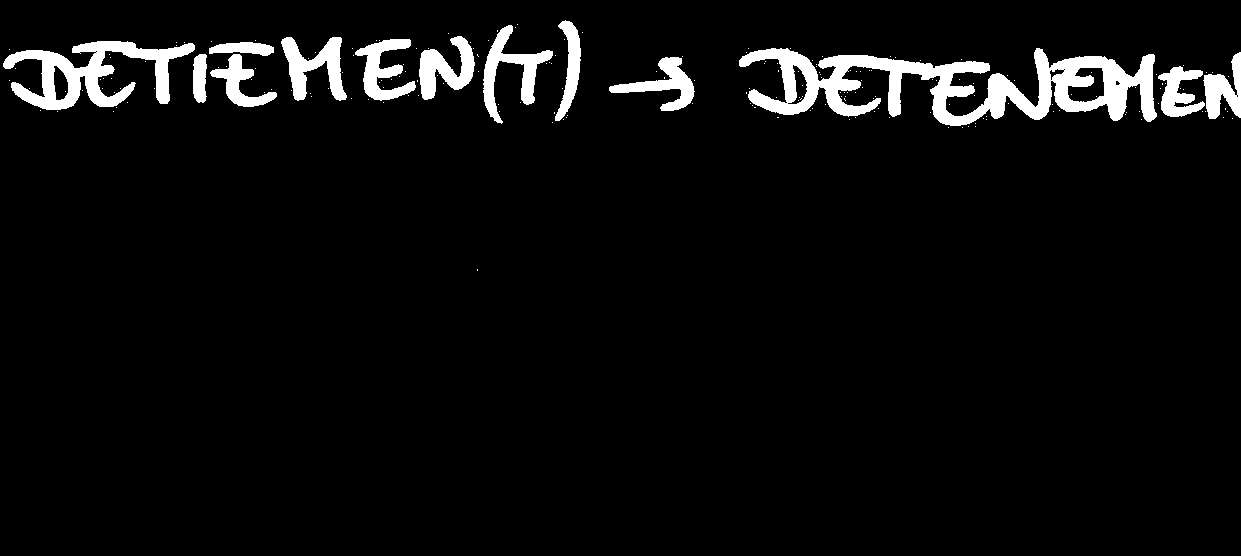 DETIEMEN(T) → DETENEMEN